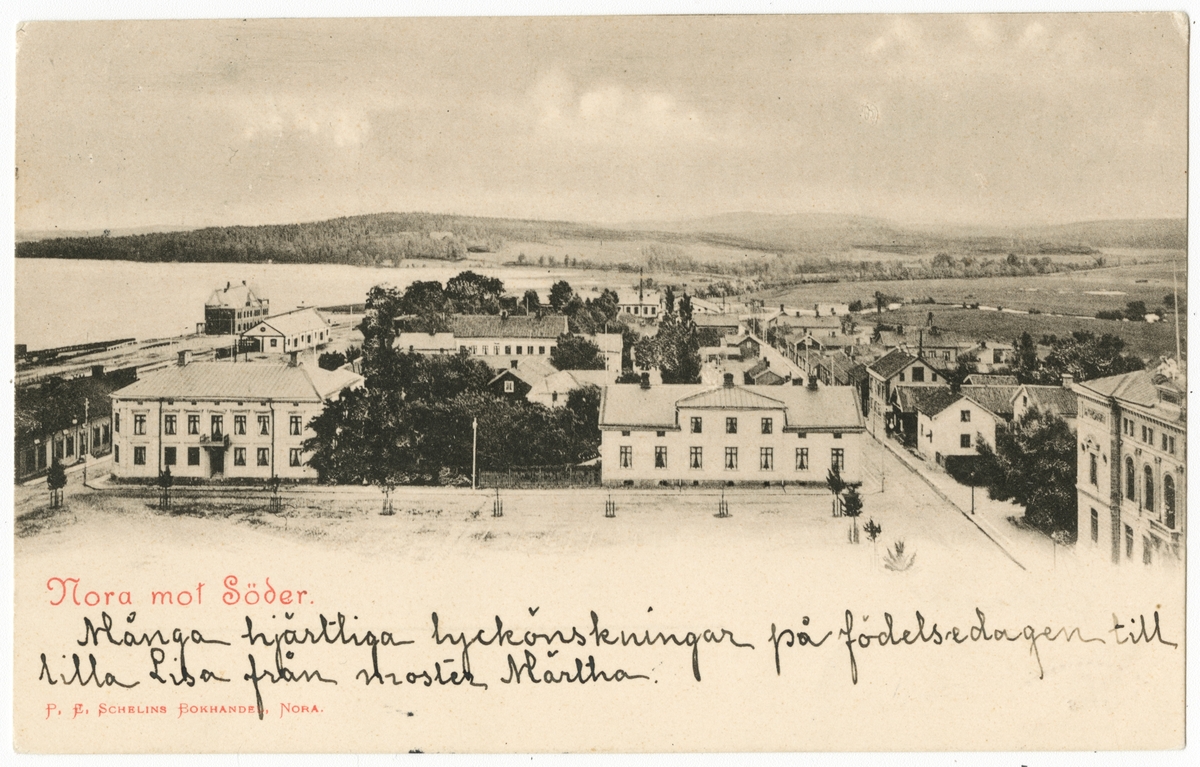 Nora mot Söder.
Många hjärtliga lyckönskningar på födelsedagen till
lilla Lisa från moster Märtha.
P. E. SCHELINS BOKHANDEL, NORA.